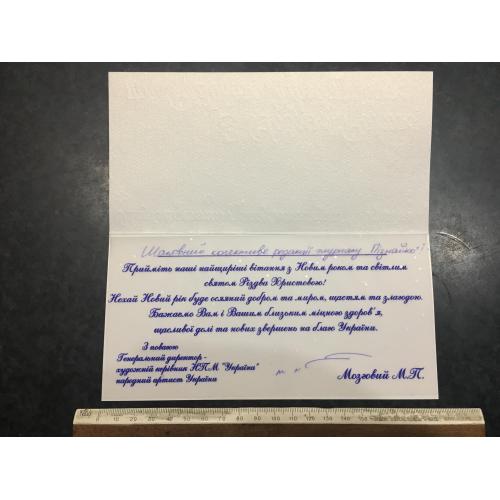 Шановний колективе редакції журналу "Пізнайко"!
Прийміть наші найщиріші вітання з Новим роком та світлим
святом Різдва Христового!
Нехай Новий рік буде осяяний добром та миром, щастям та злагодою.
Бажаємо Вам і Вашим близьким міцного здоров'я,
щасливої долі та нових звершень на благо України.
З повагою
Генеральний директор -
художній керівник НПМ "Україна"
народний артист України
Мозговий М.П.
0 10 20 30 40 50 60 70 80 90 100 110 120 130 140 150 160 170 180 190 200